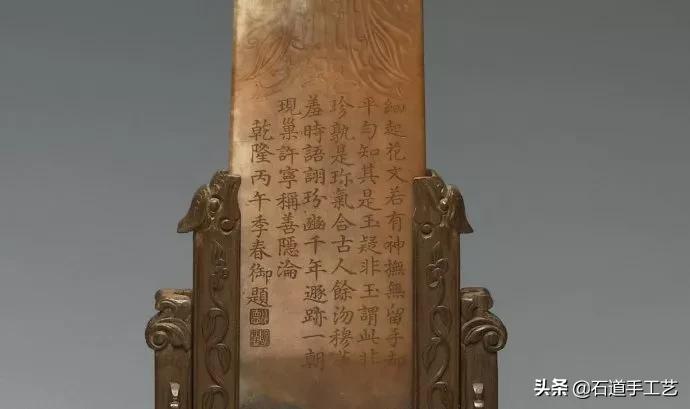 細起花文若有神撫無留手却
平勻知其是玉疑非玉謂此非
珍孰是珎氣合古人餘沕穆
羞時語詡玢豳千年遯跡一朝
現巢許寧稱善隠淪
乾隆丙午季春御題
头条 @石道手工艺